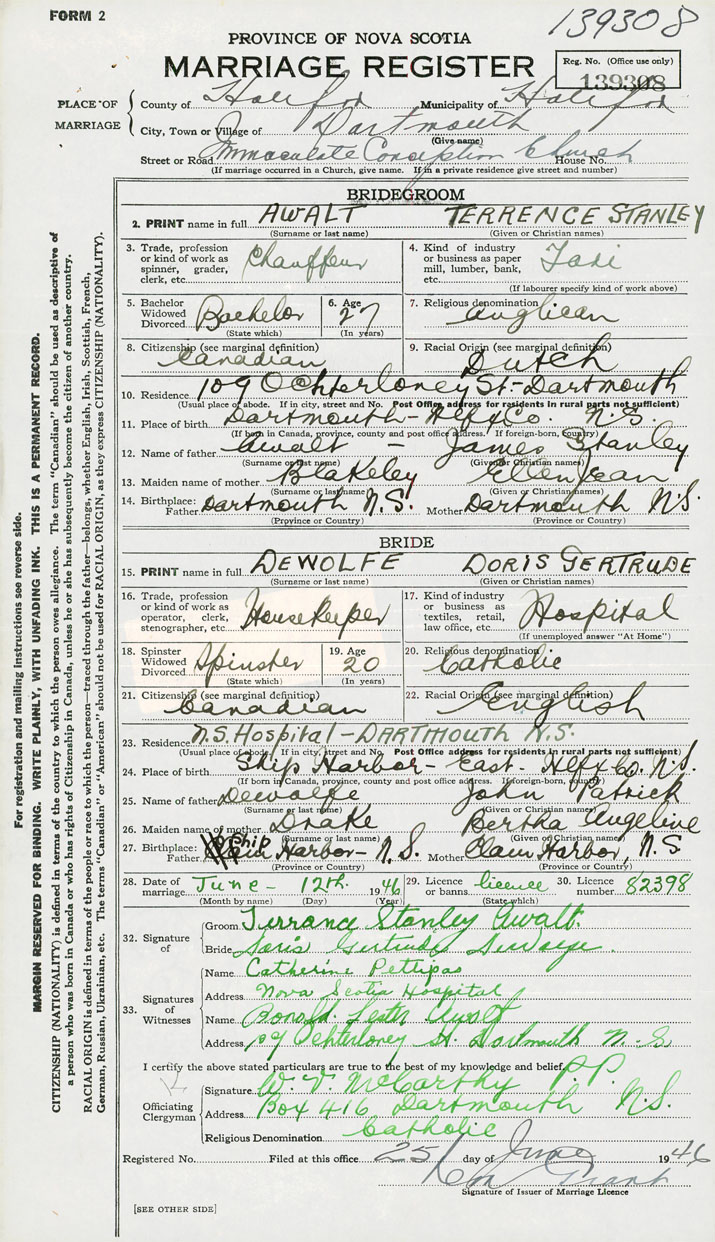 FORM 2
139308
PROVINCE OF NOVA SCOTIA
MARRIAGE REGISTER
Reg. No. (Office use only)
139308
PLACE OF MARRIAGE
County of Halifax Municipality of Halifax
City, Town or Village of Dartmouth
(Give name)
Street or Road Immaculate Conception Church House No.
(If marriage occurred in a Church, give name. If in a private residence give street and number)
BRIDEGROOM
2. PRINT name in full AWALT TERRENCE STANLEY
(Surname or last name) (Given or Christian names)
3. Trade, profession or kind of work as spinner, grader, clerk, etc. Chauffeur
4. Kind of industry or business as paper mill, lumber, bank, etc. Taxi
(If labourer specify kind of work above)
5. Bachelor Widowed Divorced Bachelor
(State which)
6. Age 27
(In years)
7. Religious denomination Anglican
8. Citizenship (see marginal definition) Canadian
9. Racial Origin (see marginal definition) Dutch
10. Residence 109 Ochterloney St - Dartmouth
(Usual place of abode. If in city, street and No. Post Office address for residents in rural parts not sufficient)
11. Place of birth Dartmouth - Hlfx Co. N.S.
(If born in Canada, province, county and post office address. If foreign-born, country)
12. Name of father Awalt - James Stanley
(Surname or last name) (Given or Christian names)
13. Maiden name of mother Blakeley Ellen Jean
(Surname or last name) (Given or Christian names)
14. Birthplace: Father Dartmouth N.S. Mother Dartmouth N.S.
(Province or Country) (Province or Country)
BRIDE
15. PRINT name in full DEWOLFE DORIS GERTRUDE
(Surname or last name) (Given or Christian names)
16. Trade, profession or kind of work as operator, clerk, stenographer, etc. Housekeeper
17. Kind of industry or business as textiles, retail, law office, etc. Hospital
(If unemployed answer "At Home")
18. Spinster Widowed Divorced Spinster
(State which)
19. Age 20
(In years)
20. Religious denomination Catholic
21. Citizenship (see marginal definition) Canadian
22. Racial Origin (see marginal definition) English
23. Residence N.S. Hospital - DARTMOUTH N.S.
(Usual place of abode. If in city, street and No. Post Office address for residents in rural parts not sufficient)
24. Place of birth Ship Harbor - East - Hlfx Co. N.S.
(If born in Canada, province, county and post office address. If foreign-born, country)
25. Name of father Dewolfe John Patrick
(Surname or last name) (Given or Christian names)
26. Maiden name of mother Drake Bertha Angeline
(Surname or last name) (Given or Christian names)
27. Birthplace: Father Ship Harbor - N.S. Mother Clam Harbor, N.S
(Province or Country) (Province or Country)
28. Date of marriage June - 12th. 1946
(Month by name) (Day) (Year)
29. Licence or banns licence
(State which)
30. Licence number 82398
32. Signature of
Groom Terrance Stanley Awalt.
Bride Doris Gertrude
33. Signatures of Witnesses
Name Catherine Pettipas
Address Nova Scotia Hospital
Name Ronold Lester Awalt
Address 109 Ochterloney St. Dartmouth N.S
I certify the above stated particulars are true to the best of my knowledge and belief.
Officiating Clergyman
Signature W. V. McCarthy P.P.
Address Box 416 Dartmouth N.S.
Religious Denomination Catholic
Registered No. Filed at this office 25 day of June 1946
Grant
Signature of Issuer of Marriage Licence
[SEE OTHER SIDE]
For registration and mailing instructions see reverse side.
MARGIN RESERVED FOR BINDING. WRITE PLAINLY, WITH UNFADING INK. THIS IS A PERMANENT RECORD.
CITIZENSHIP (NATIONALITY) is defined in terms of the country to which the person owes allegiance. The term "Canadian" should be used as descriptive of
a person who was born in Canada or who has rights of Citizenship in Canada, unless he or she has subsequently become the citizen of another country.
RACIAL ORIGIN is defined in terms of the people or race to which the person—traced through the father—belongs, whether English, Irish, Scottish, French,
German, Russian, Ukrainian, etc. The terms "Canadian" or "American" should not be used for RACIAL ORIGIN, as they express CITIZENSHIP (NATIONALITY).